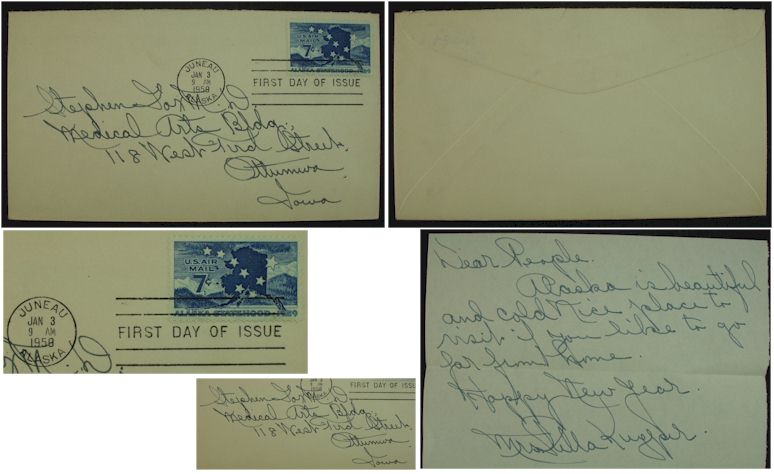 U.S. AIR
MAIL
7¢
ALASKA STATEHOOD-1959
JUNEAU
JAN 3
9 AM
1958
ALASKA
FIRST DAY OF ISSUE
Stephen M.D
Medical Arts Bldg.
118 West Third Street.
Ottumwa
Iowa
U.S. AIR
MAIL
7¢
ALASKA STATEHOOD-1959
JUNEAU
JAN 3
9 AM
1958
ALASKA
FIRST DAY OF ISSUE
Dear People.
Alaska is beautiful
and cold Nice place to
visit if you like to go
far from Home.
Happy New Year.
Mrs.
FIRST DAY OF ISSUE
Stephen M.D
Medical Arts Bldg.
118 West Third Street.
Ottumwa
Iowa